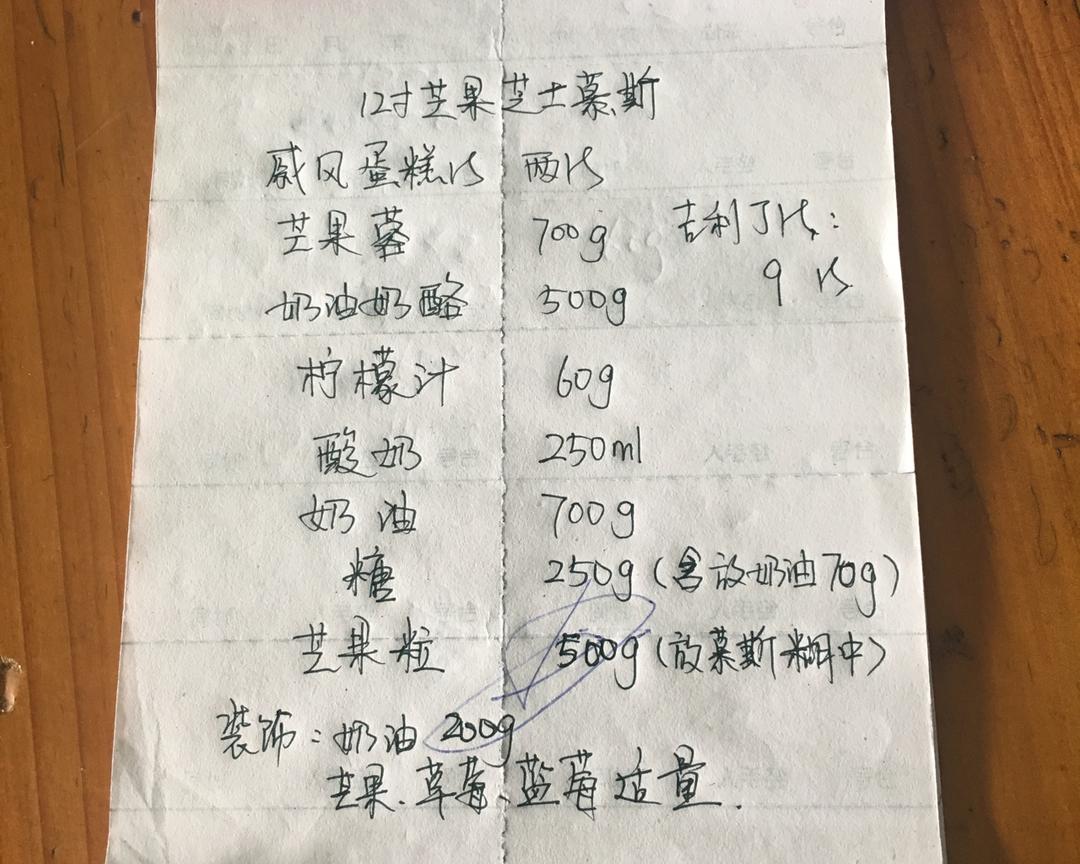 12寸芒果芝士慕斯
戚风蛋糕片 两片
芒果蓉 700g
吉利丁片:
9 片
奶油奶酪 500g
柠檬汁 60g
酸奶 250ml
奶油 700g
糖 250g(含放奶油70g)
芒果粒 500g(放慕斯糊中)
装饰:奶油 200g
芒果.草莓.蓝莓适量.